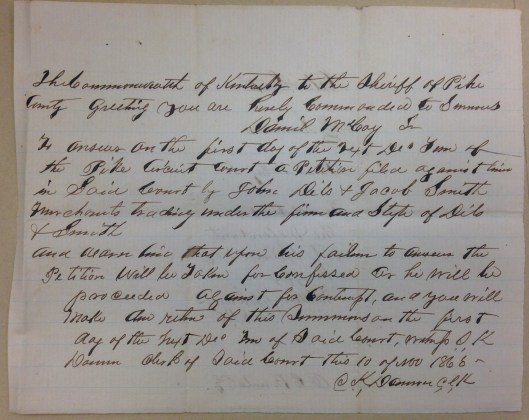 The Commonwealth of Kentucky to the Sheriff of Pike
County Greeting you are hereby Commanded to Summons
Daniel McCoy Sr
To answer on the first day of the next Dec Term of
the Pike Circuit Court a Petition filed against him
in Said Court by John Dils & Jacob Smith
Merchants trading under the firm and Style of Dils
& Smith
and warn him that upon his failure to answer the
Petition Will be Taken for Confessed Or he will be
proceeded Against for Contempt, and you will
Make due return of this Summons on the first
day of the next Dec Term of Said Court, O K
Clerk of Said Court this 10 of Nov 1866
O K